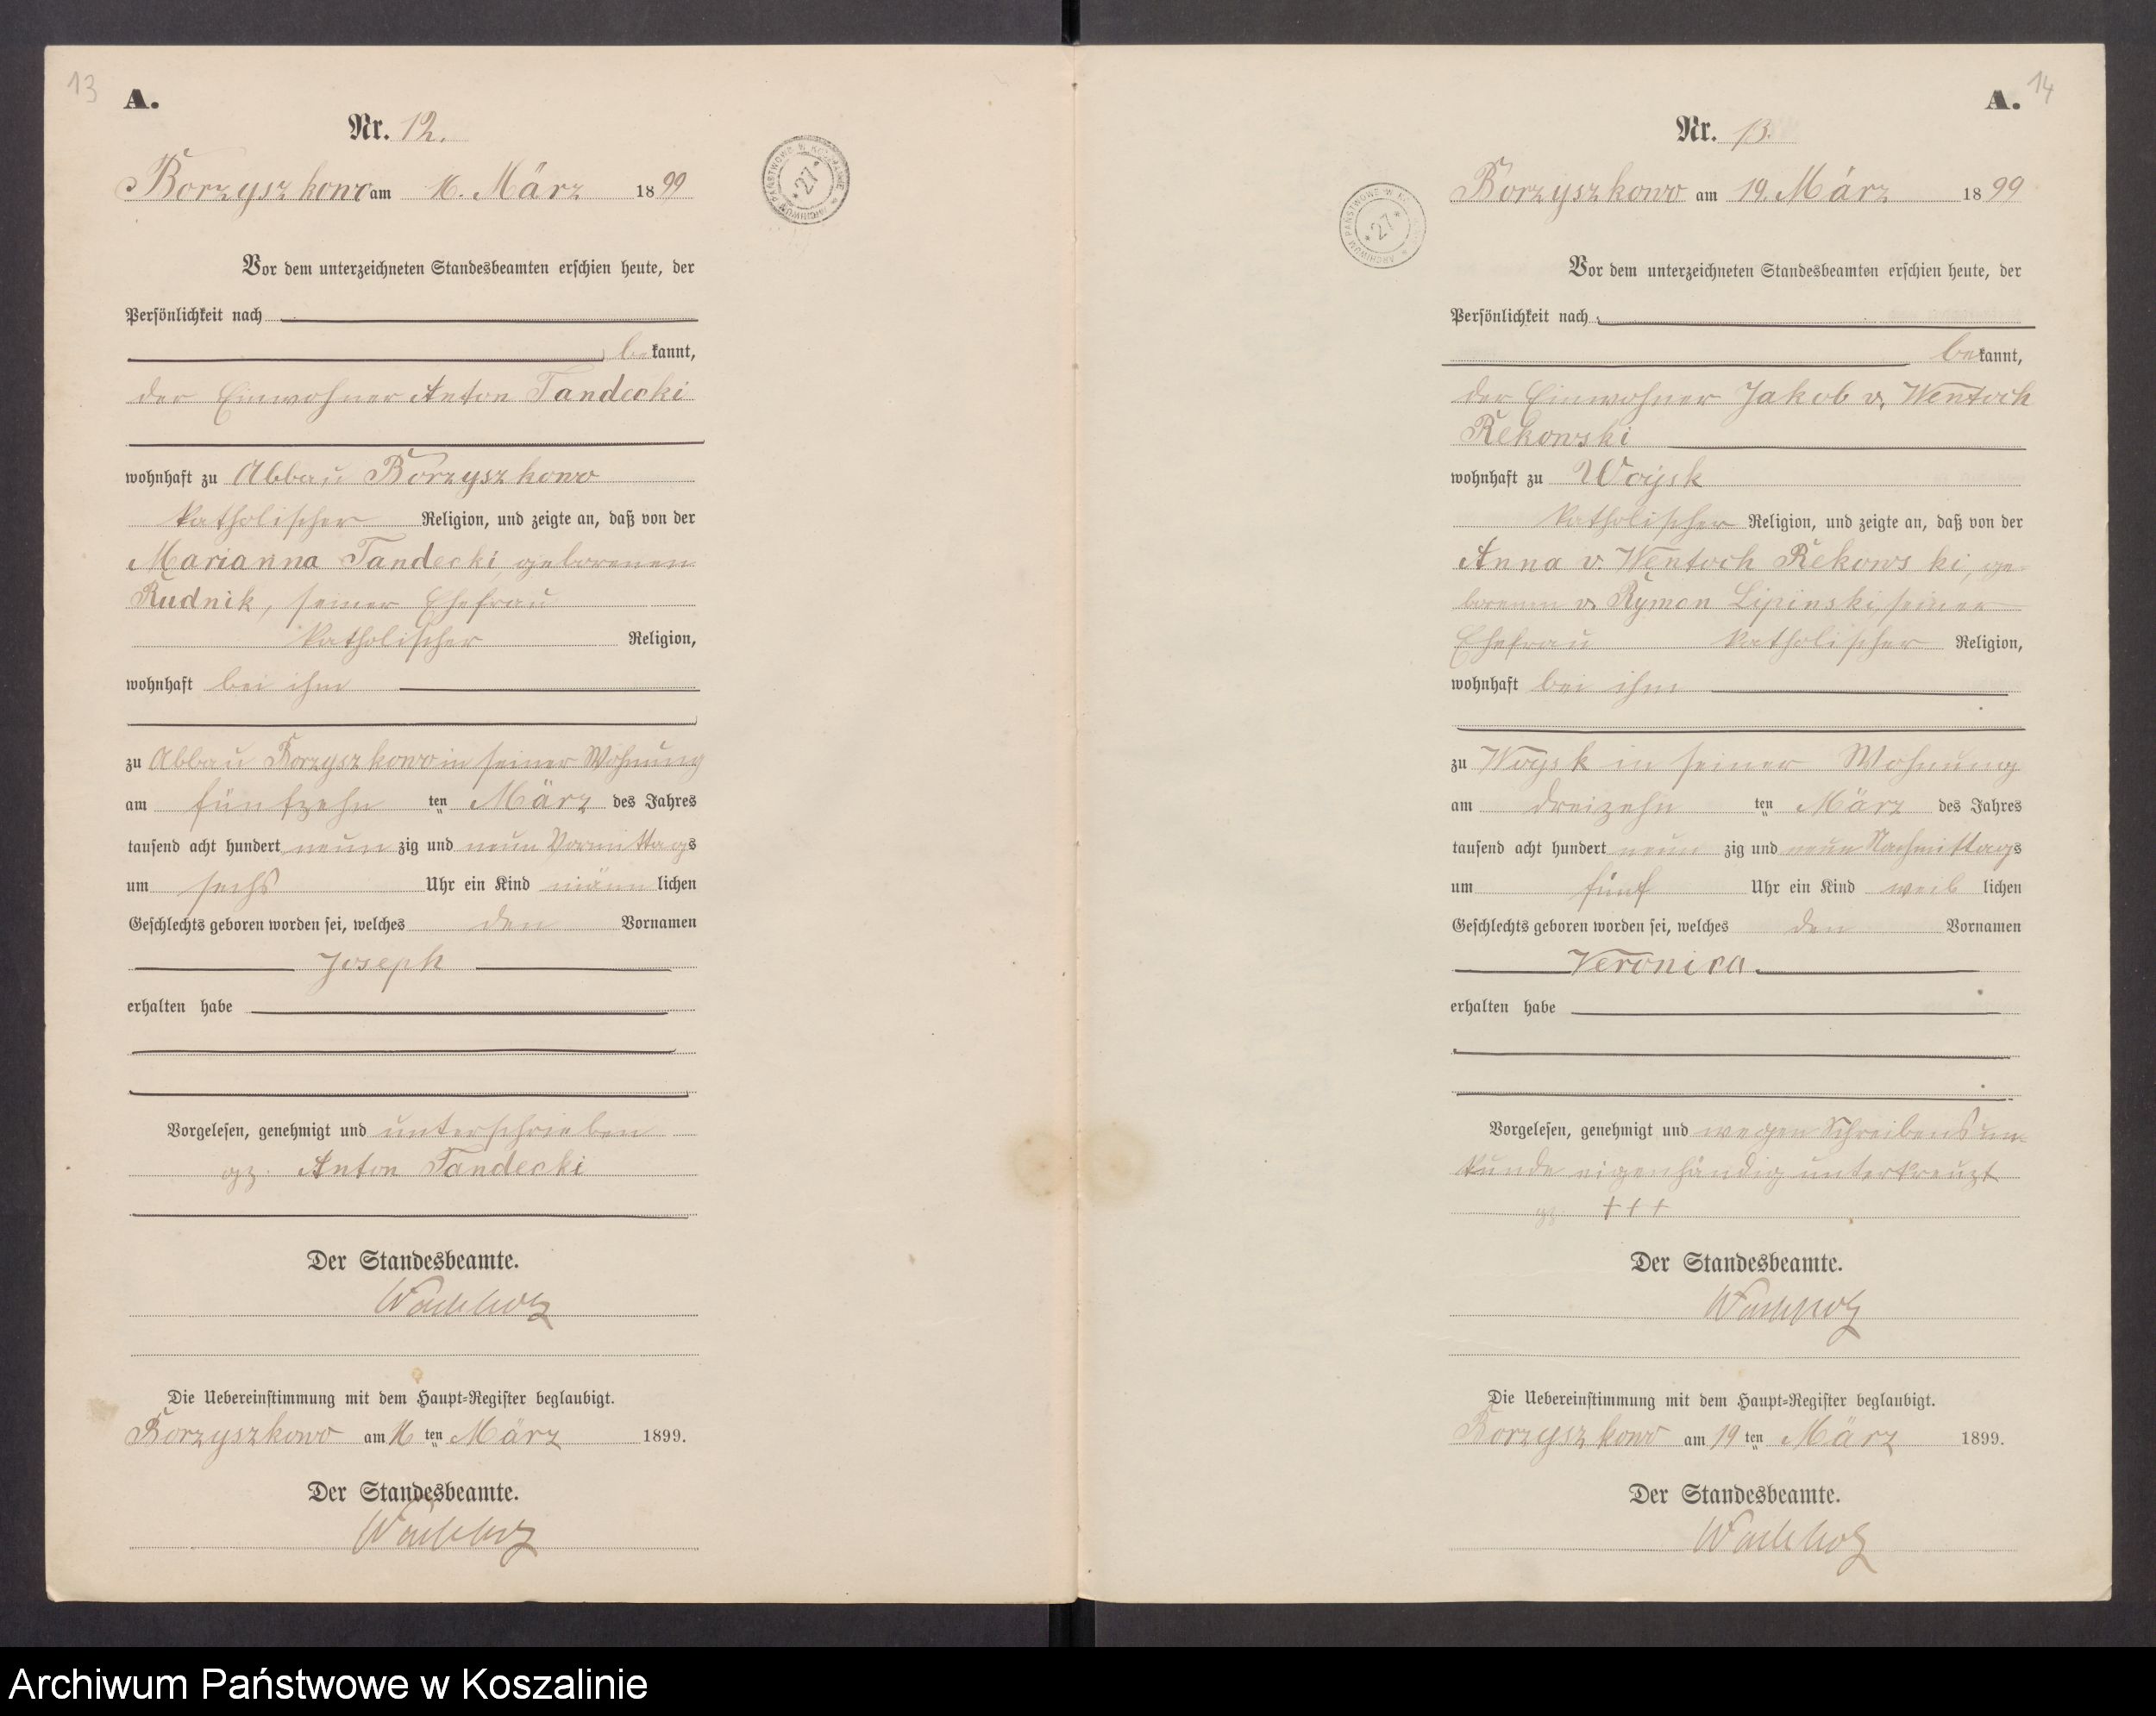 13
A.
Nr. 12.
Borzyszkowo am 16. März 1899
ARCHIWUM PAŃSTWOWE W KOSZALINIE
* 27 *
Vor dem unterzeichneten Standesbeamten erschien heute, der
Persönlichkeit nach
bekannt,
der Einwohner Anton Tandecki
wohnhaft zu Abbau Borzyszkowo
katholischer Religion, und zeigte an, daß von der
Marianna Tandecki, geborenen
Rudnik, seiner Ehefrau
katholischer Religion,
wohnhaft bei ihm
zu Abbau Borzyszkowo in seiner Wohnung
am fünfzehnten März des Jahres
tausend acht hundert neunzig und neun Vormittags
um sechs Uhr ein Kind männlichen
Geschlechts geboren worden sei, welches den Vornamen
Joseph
erhalten habe
Vorgelesen, genehmigt und unterschrieben
gz. Anton Tandecki
Der Standesbeamte.
Wachholz
Die Uebereinstimmung mit dem Haupt-Register beglaubigt.
Borzyszkowo am 16ten März 1899.
Der Standesbeamte.
Wachholz
14
A.
Nr. 13.
Borzyszkowo am 19. März 1899
ARCHIWUM PAŃSTWOWE W
* 27 *
Vor dem unterzeichneten Standesbeamten erschien heute, der
Persönlichkeit nach
bekannt,
der Einwohner Jakob v. Wentoch
Rekowski
wohnhaft zu Woysk
katholischer Religion, und zeigte an, daß von der
Anna v. Wentoch Rekowski, ge-
borenen v. Rymon Lipinski, seiner
Ehefrau katholischer Religion,
wohnhaft bei ihm
zu Woysk in seiner Wohnung
am dreizehnten März des Jahres
tausend acht hundert neunzig und neun Nachmittags
um fünf Uhr ein Kind weiblichen
Geschlechts geboren worden sei, welches den Vornamen
Veronica
erhalten habe
Vorgelesen, genehmigt und wegen Schreibensun-
kunde eigenhändig unterkreuzt
gz. + + +
Der Standesbeamte.
Wachholz
Die Uebereinstimmung mit dem Haupt-Register beglaubigt.
Borzyszkowo am 19ten März 1899.
Der Standesbeamte.
Wachholz
Archiwum Państwowe w Koszalinie